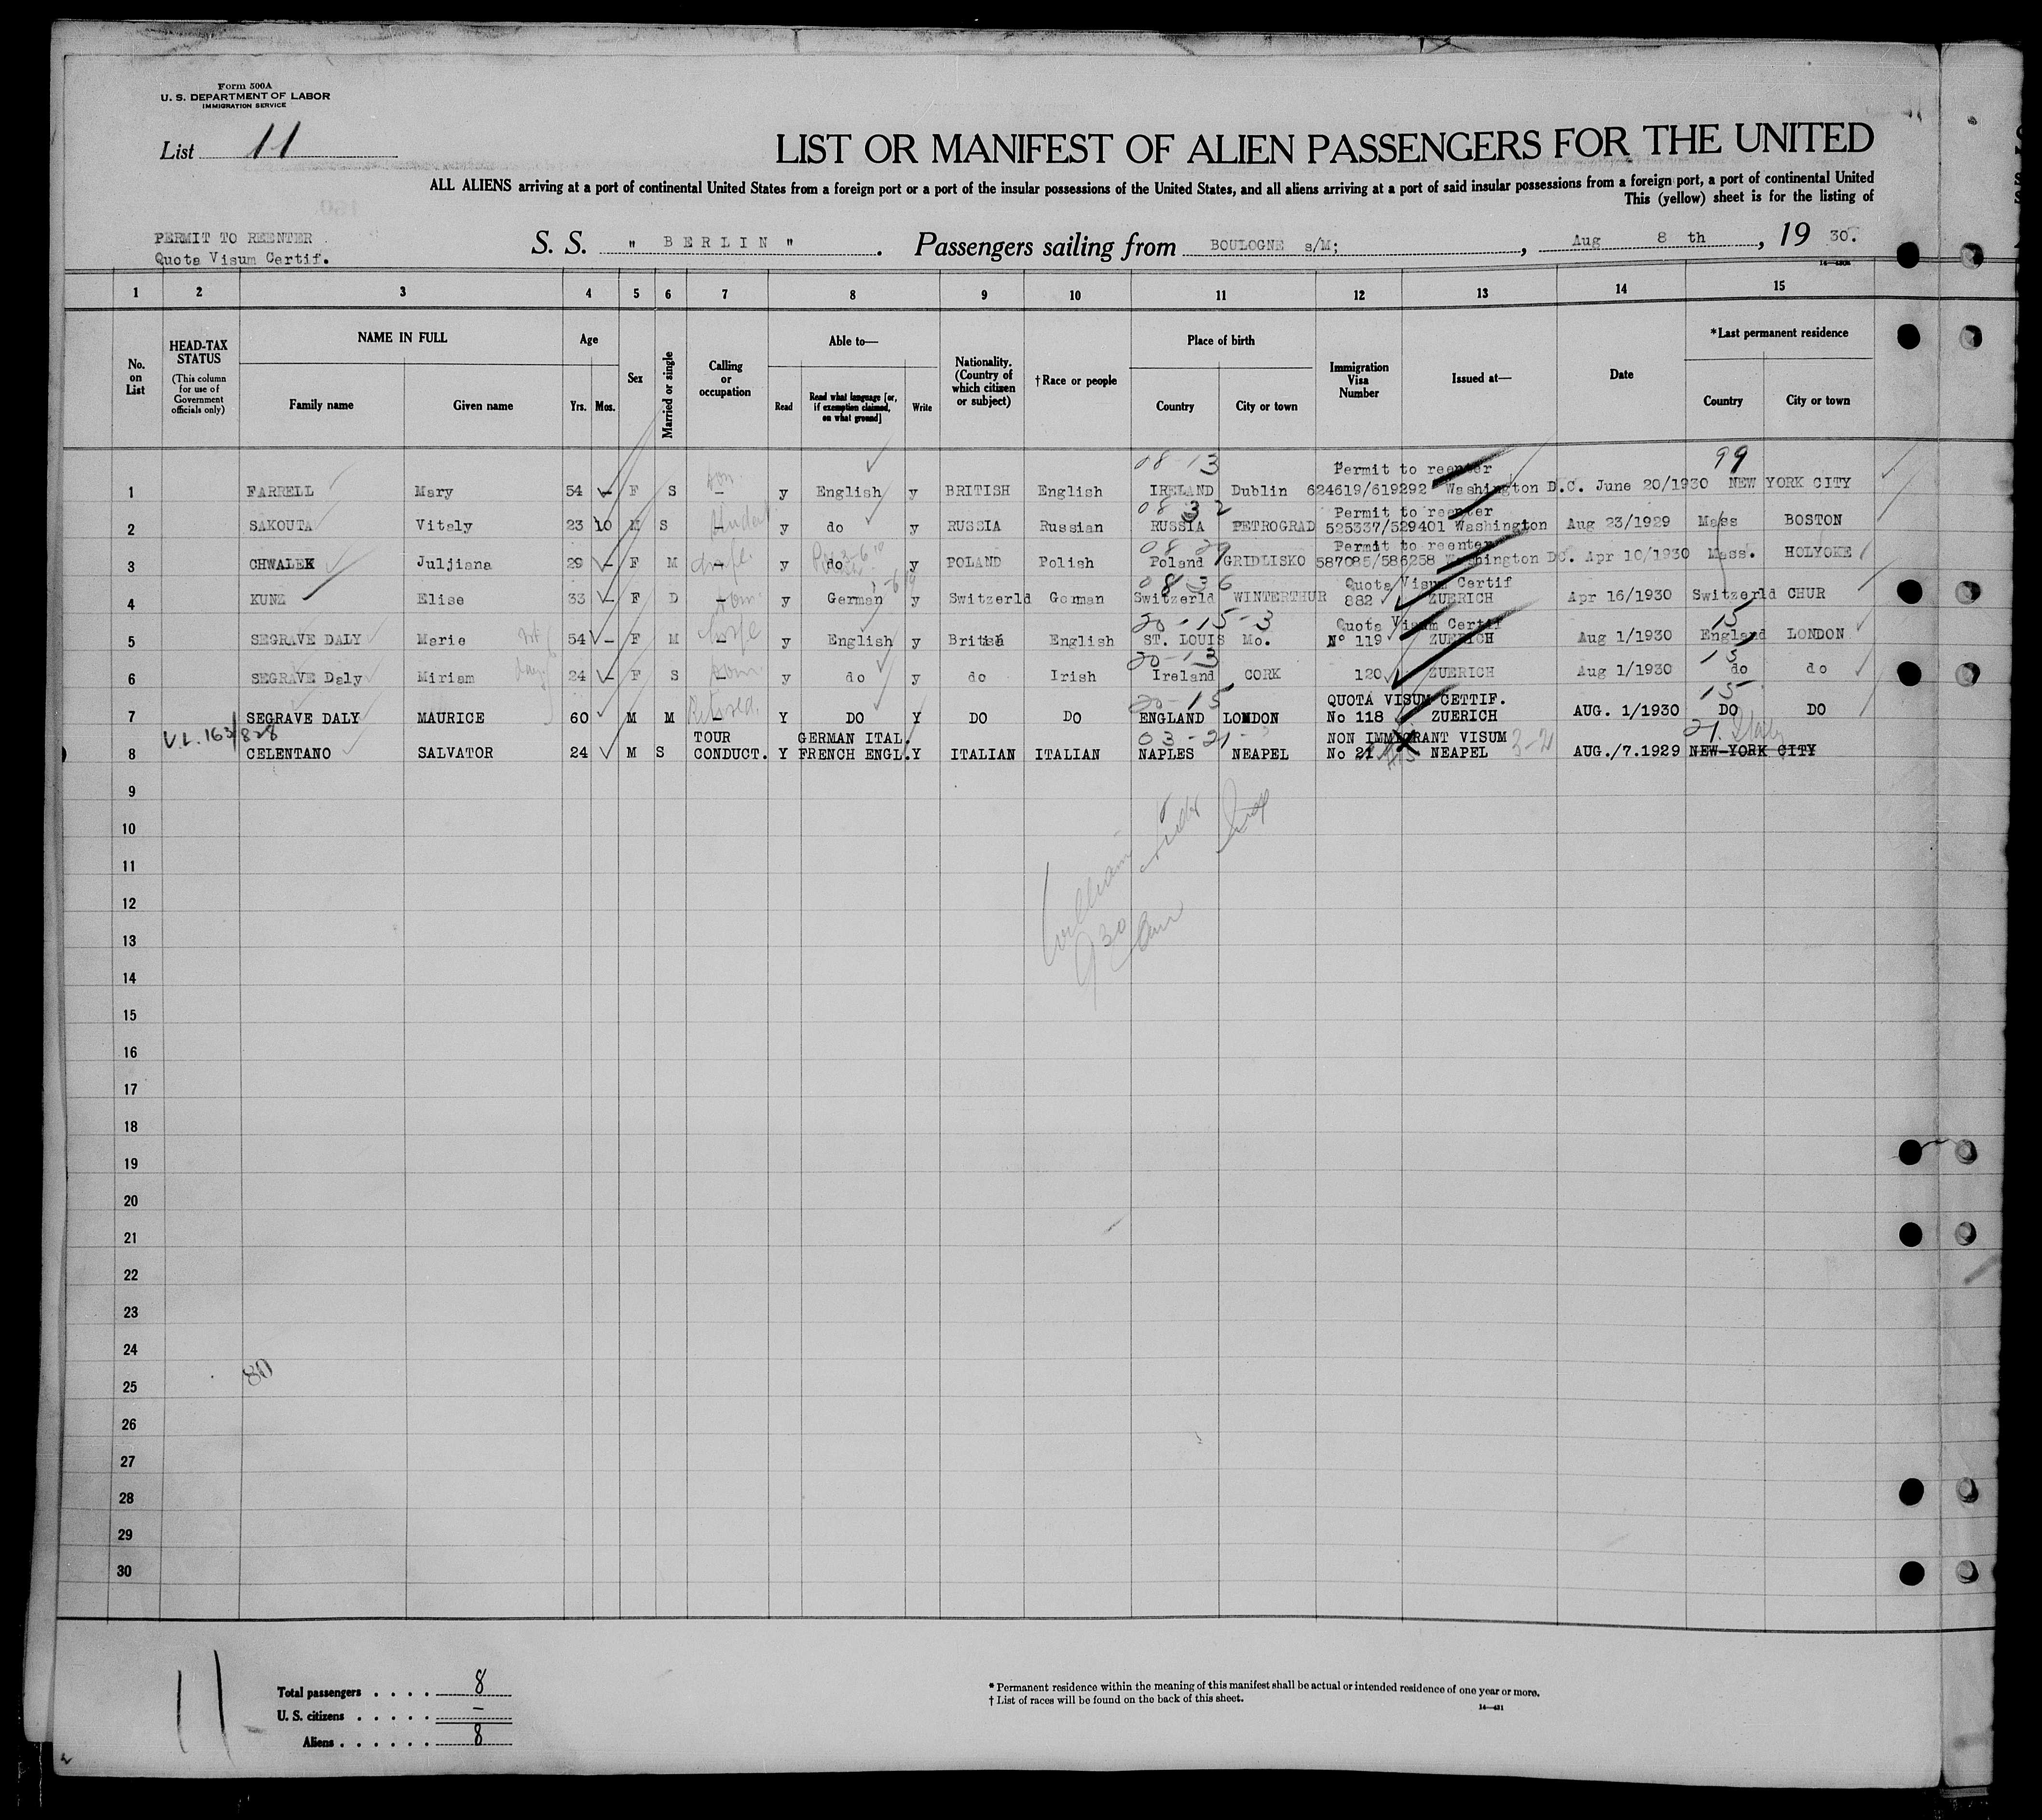 Form 500A
U. S. DEPARTMENT OF LABOR
IMMIGRATION SERVICE
List 11
LIST OR MANIFEST OF ALIEN PASSENGERS FOR THE UNITED
ALL ALIENS arriving at a port of continental United States from a foreign port or a port of the insular possessions of the United States, and all aliens arriving at a port of said insular possessions from a foreign port, a port of continental United
This (yellow) sheet is for the listing of
PERMIT TO REENTER
Quota Visum Certif.
S. S. " BERLIN ". Passengers sailing from BOULOGNE s/M; , Aug 8 th , 19 30.
1 2 3 4 5 6 7 8 9 10 11 12 13 14 15
No. on List
HEAD-TAX STATUS
(This column for use of Government officials only)
NAME IN FULL
Family name Given name
Age
Yrs. Mos.
Sex
Married or single
Calling or occupation
Able to—
Read
Read what language [or, if exemption claimed, on what ground]
Write
Nationality. (Country of which citizen or subject)
† Race or people
Place of birth
Country City or town
Immigration Visa Number
Issued at—
Date
*Last permanent residence
Country City or town
08-13 Permit to reenter 99
1 FARRELL Mary 54 - F S - y English y BRITISH English IRELAND Dublin 624619/619292 Washington D.C. June 20/1930 NEW YORK CITY
08 32 Permit to reenter
2 SAKOUTA Vitaly 23 10 M S Student - y do y RUSSIA Russian RUSSIA PETROGRAD 525337/529401 Washington Aug 23/1929 Mass BOSTON
08 29 Permit to reenter
3 CHWALEK Juljiana 29 - F M - y do y POLAND Polish Poland GRIDLISKO 587085/586258 Washington DC. Apr 10/1930 Mass. HOLYOKE
08 36 Quota Visum Certif
4 KUNZ Elise 33 - F D - y German y Switzerld German Switzerld WINTERTHUR 882 ZUERICH Apr 16/1930 Switzerld CHUR
20-15-3 Quota Visum Certif 15
5 SEGRAVE DALY Marie 54 - F M - y English y British English ST. LOUIS Mo. No 119 ZUERICH Aug 1/1930 England LONDON
20-13 15
6 SEGRAVE Daly Miriam 24 - F S - y do y do Irish Ireland CORK 120 ZUERICH Aug 1/1930 do do
20-15 QUOTA VISUM CETTIF. 15
7 SEGRAVE DALY MAURICE 60 M M Retired. - Y DO Y DO DO ENGLAND LONDON No 118 ZUERICH AUG. 1/1930 DO DO
V.L. 163/828 TOUR GERMAN ITAL. 03-21- NON IMMIGRANT VISUM 3-21 21. Italy
8 CELENTANO SALVATOR 24 M S CONDUCT. Y FRENCH ENGL. Y ITALIAN ITALIAN NAPLES NEAPEL No 21 NEAPEL AUG./7.1929 NEW-YORK CITY
9
10
11
12
13
14
15
16
17
18
19
20
21
22
23
24
80
25
26
27
28
29
30
11
Total passengers . . . . 8
U. S. citizens . . . . . —
Aliens . . . . . . 8
* Permanent residence within the meaning of this manifest shall be actual or intended residence of one year or more.
† List of races will be found on the back of this sheet.
14—431